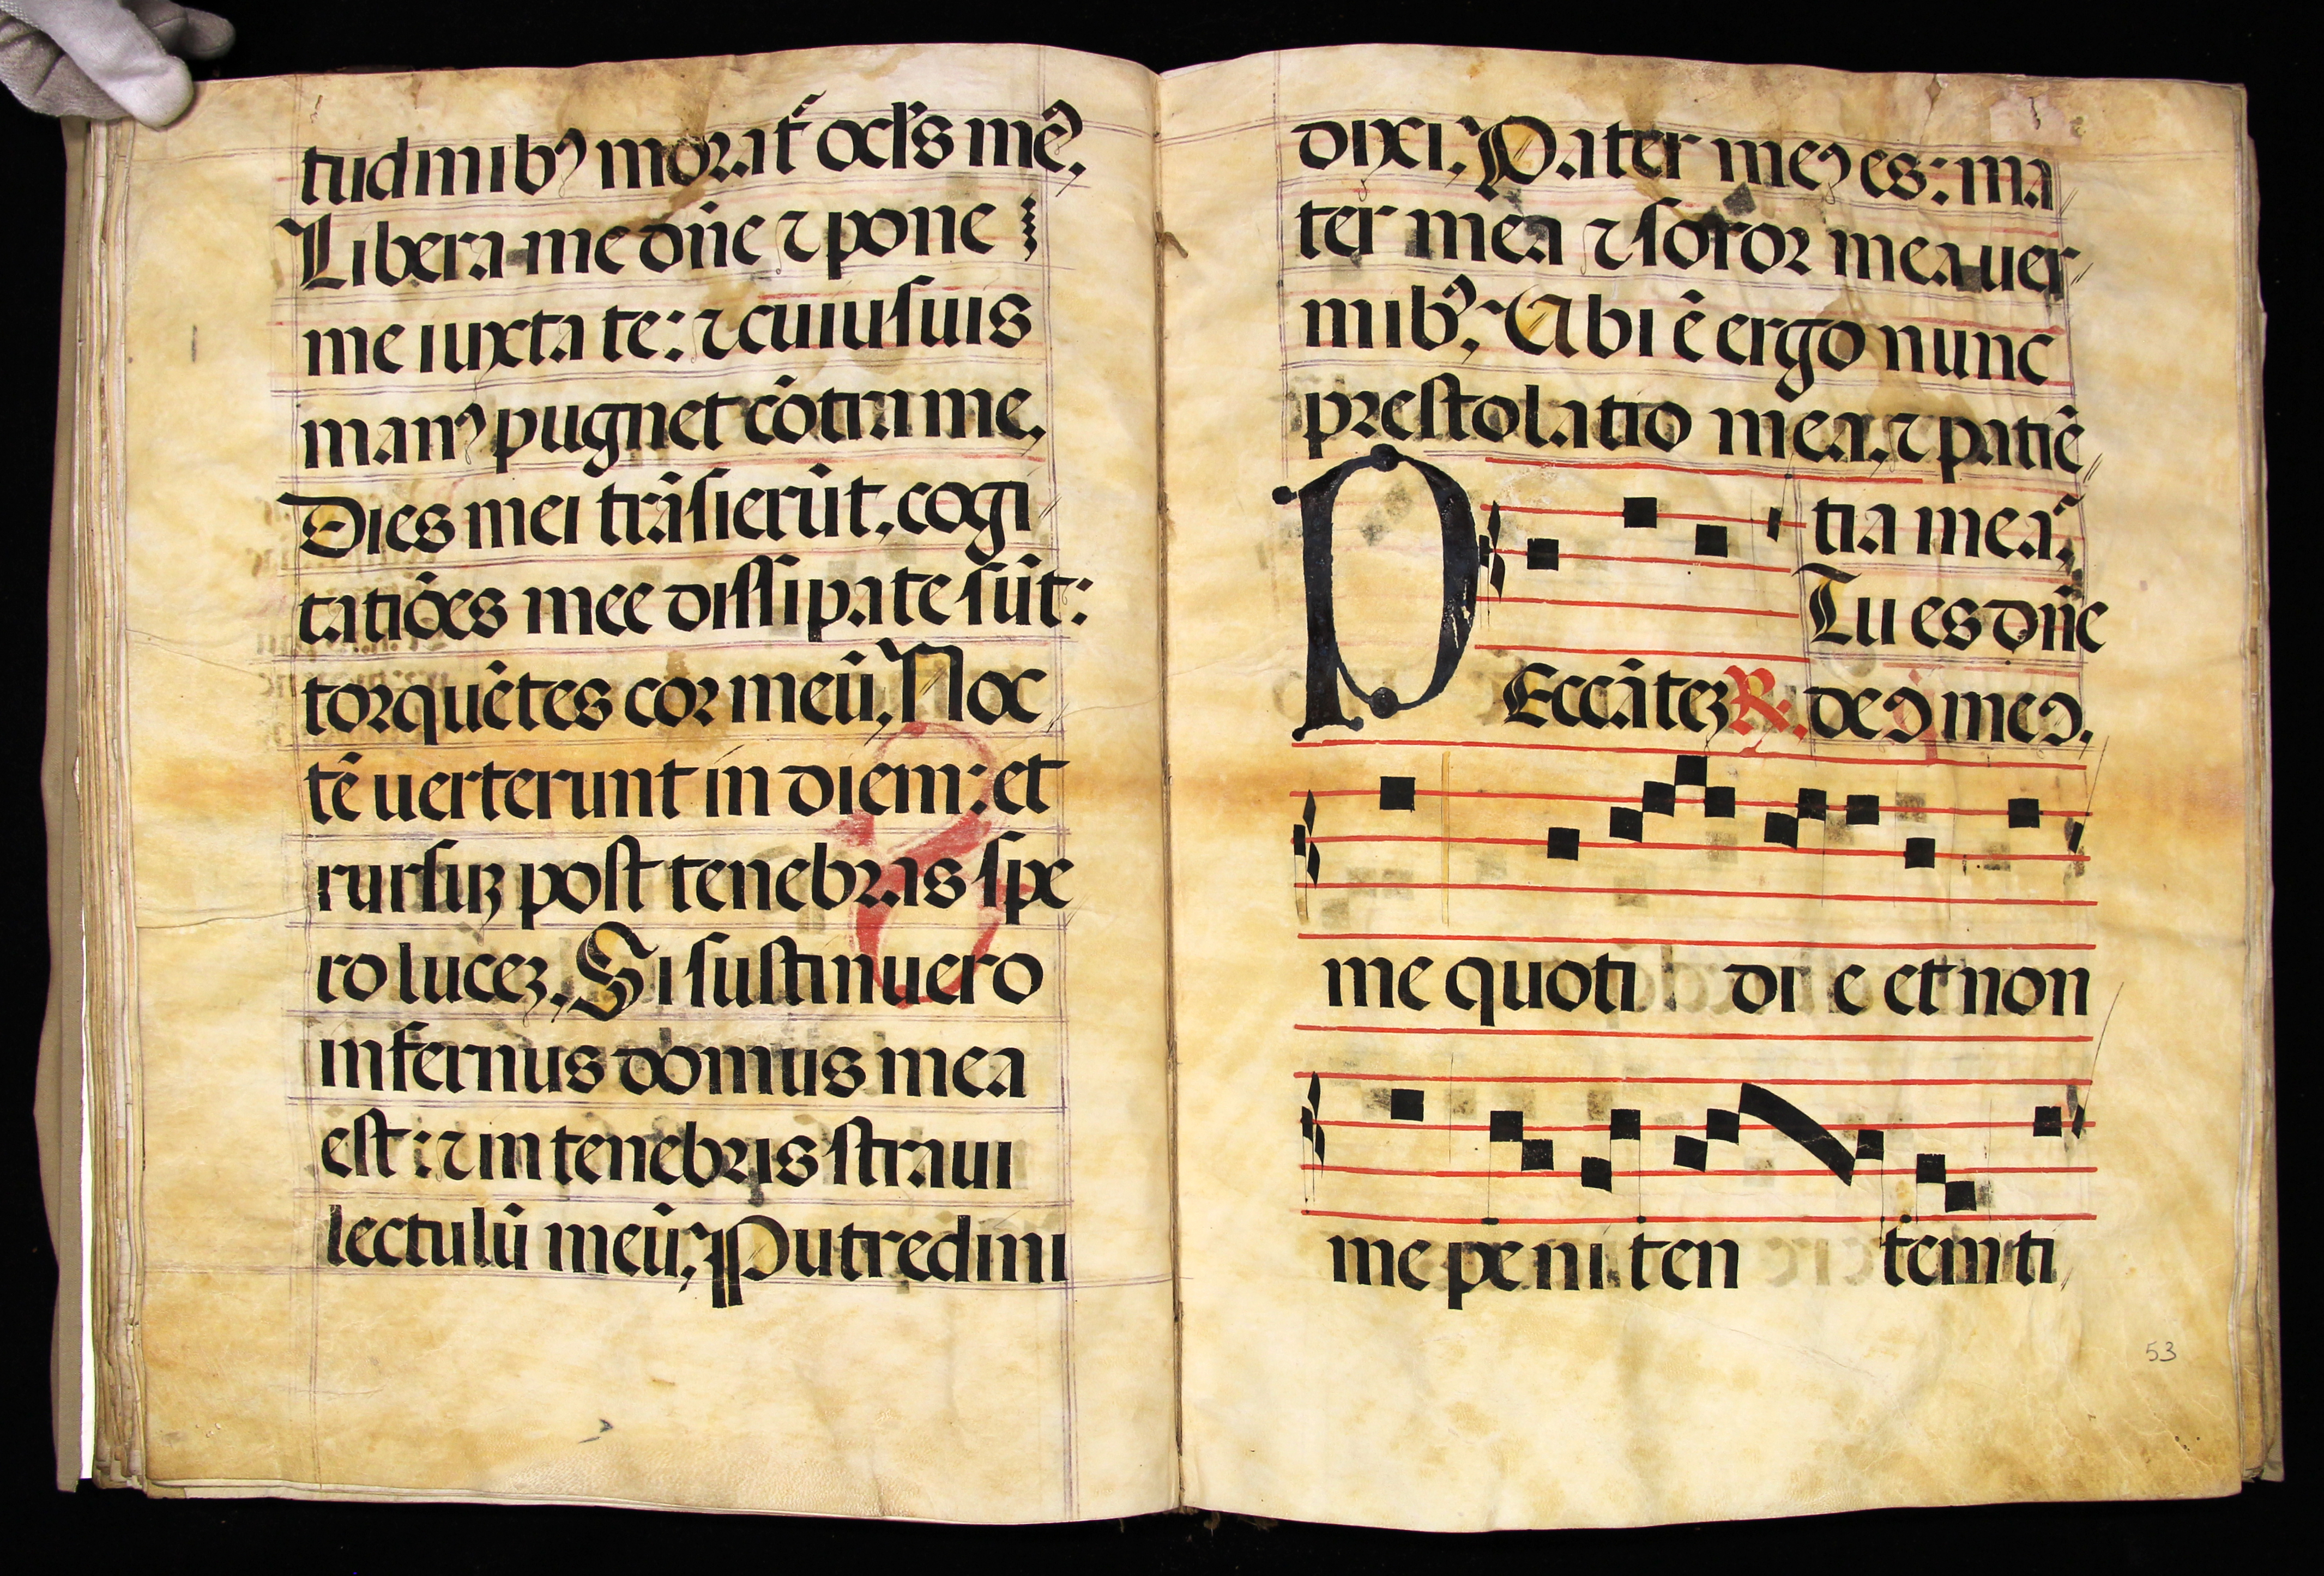 tudinibꝰ morat᷑ oc̄ls mē⁊.
Libera me dñe ⁊ pone
me iuxta te: ⁊ cuiusuis
manꝰ pugnet cōtra me.
Dies mei trāsierūt, cogi
tatiōes mee dissipate sūt:
torquētes cor meū, Noc
tē uerterunt in diem: et
rursuꝫ post tenebras spe
ro luceꝫ. Si sustinuero
infernus domus mea
est: ⁊ in tenebris straui
lectulū meū; Putredini
dixi; Pater meꝰ es: ma
ter mea ⁊ soror mea uer
mibꝰ; Ubi ē ergo nunc
prestolatio mea, ⁊ patiē
tia mea;
Tu es dñe
deꝰ meꝰ.
PEccāteꝫ ℟.
me quoti di e et non
me peni ten tem ti
53